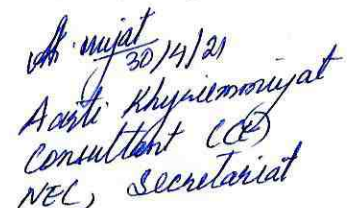 30/4/21
Aarti Khyriemmujat
Consultant (CC)
NEC, Secretariat